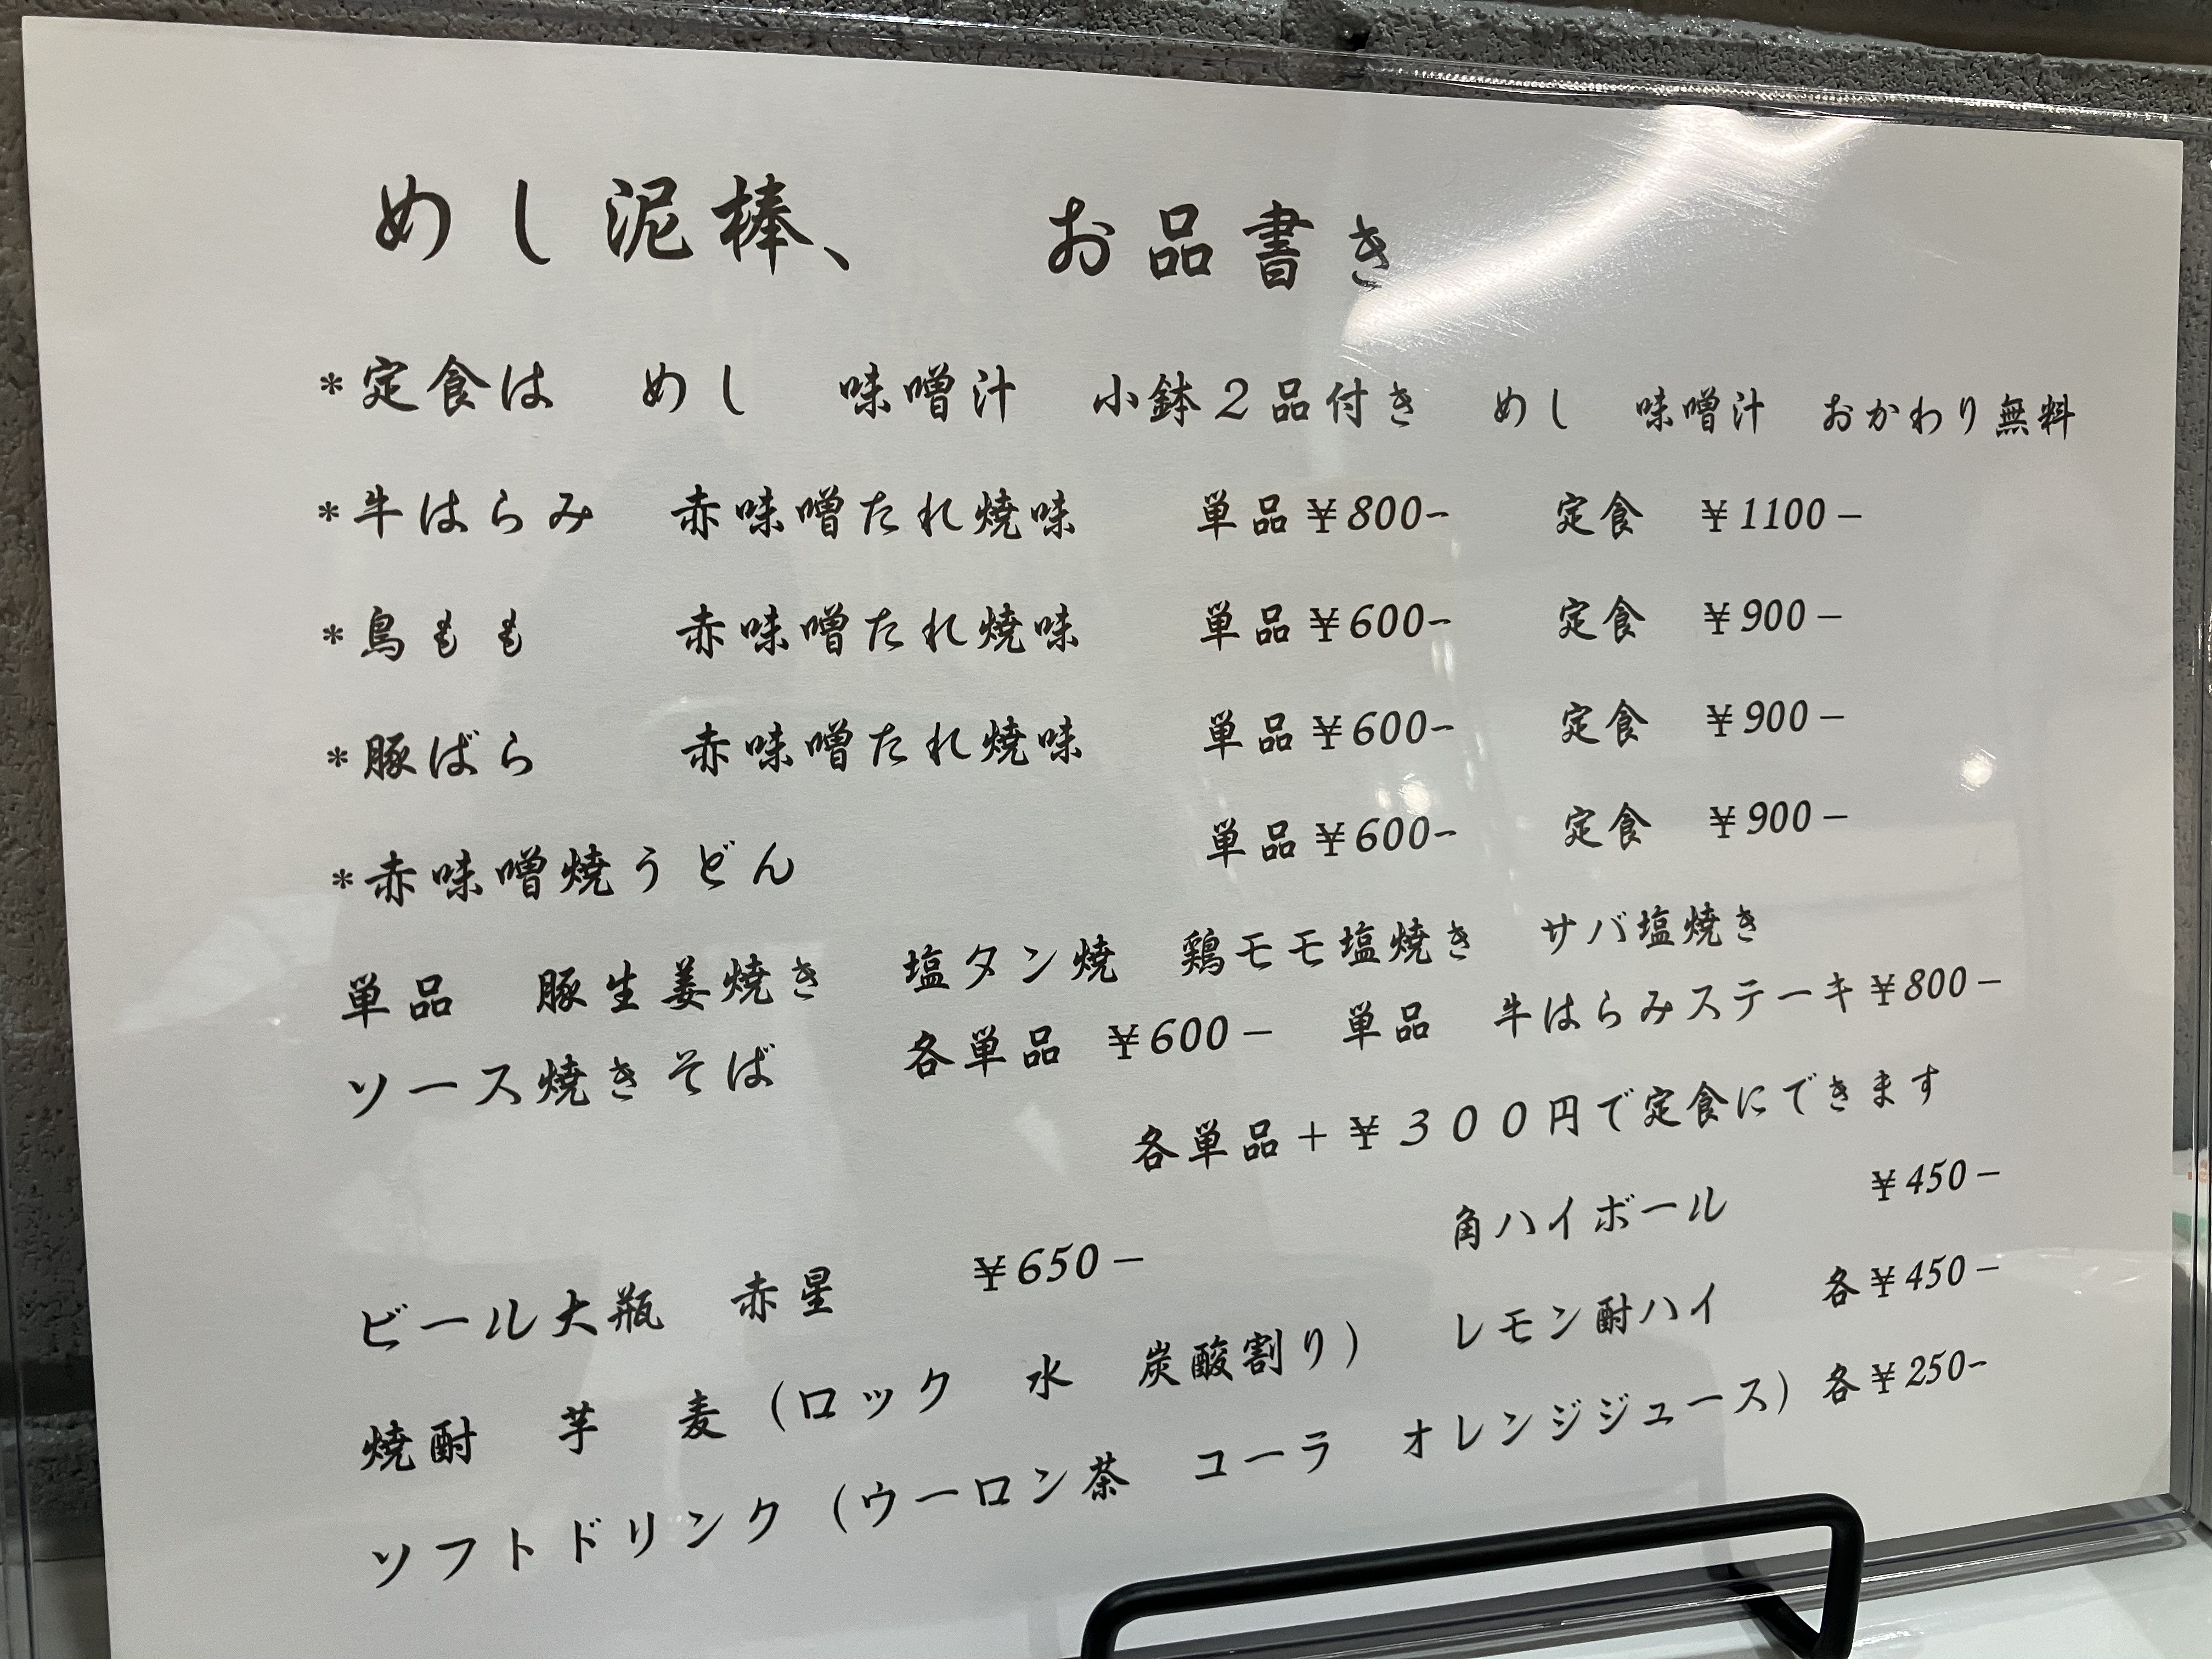 めし泥棒、　お品書き
*定食は　めし　味噌汁　小鉢２品付き　めし　味噌汁　おかわり無料
*牛はらみ　赤味噌たれ焼味　単品￥800-　定食　￥1100－
*鳥もも　赤味噌たれ焼味　単品￥600-　定食　￥900－
*豚ばら　赤味噌たれ焼味　単品￥600-　定食　￥900－
*赤味噌焼うどん　単品￥600-　定食　￥900－
単品　豚生姜焼き　塩タン焼　鶏モモ塩焼き　サバ塩焼き
ソース焼きそば　各単品　￥600－　単品　牛はらみステーキ￥800－
各単品＋￥３００円で定食にできます
ビール大瓶　赤星　￥650－　角ハイボール　￥450－
焼酎　芋　麦（ロック　水　炭酸割り）　レモン酎ハイ　各￥450－
ソフトドリンク（ウーロン茶　コーラ　オレンジジュース）各￥250-